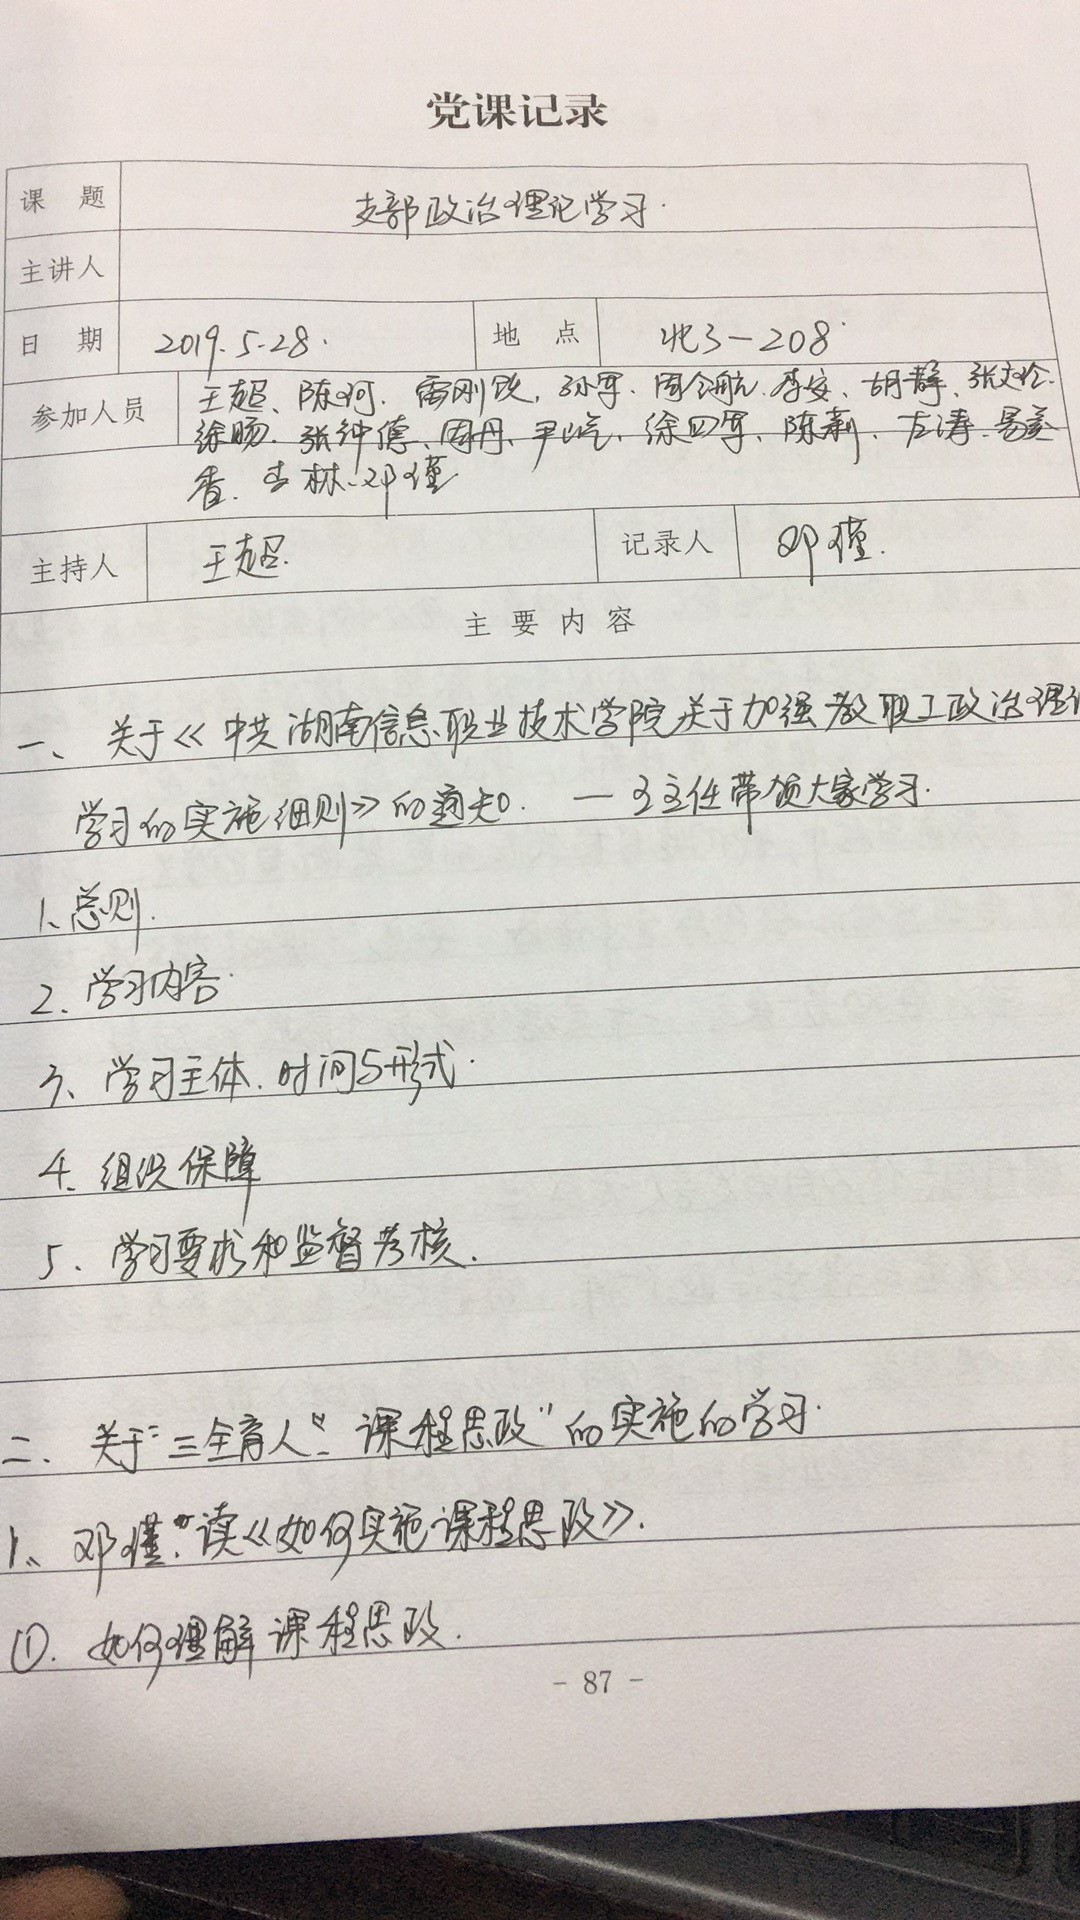 党课记录
课 题 支部政治理论学习.
主讲人
日 期 2019.5.28. 地 点 北3-208
参加人员 王超、陈珂、雷刚跃,孙军、周全航、李安、胡静、张文伶.
徐旸、张钟德、周丹、尹屹、徐四军、陈新、左涛、易美
香、吉林、邓瑾
主持人 王超. 记录人 邓瑾.
主要内容
一、关于《中共湖南信息职业技术学院关于加强教职工政治理论
学习的实施细则》的通知. —王主任带领大家学习.
1、总则.
2、学习内容.
3、学习主体、时间与形式.
4、组织保障
5、学习要求和监督考核.
二、关于"三全育人" "课程思政"的实施的学习.
1、邓瑾:读《如何实施课程思政》.
①.如何理解课程思政.
- 87 -